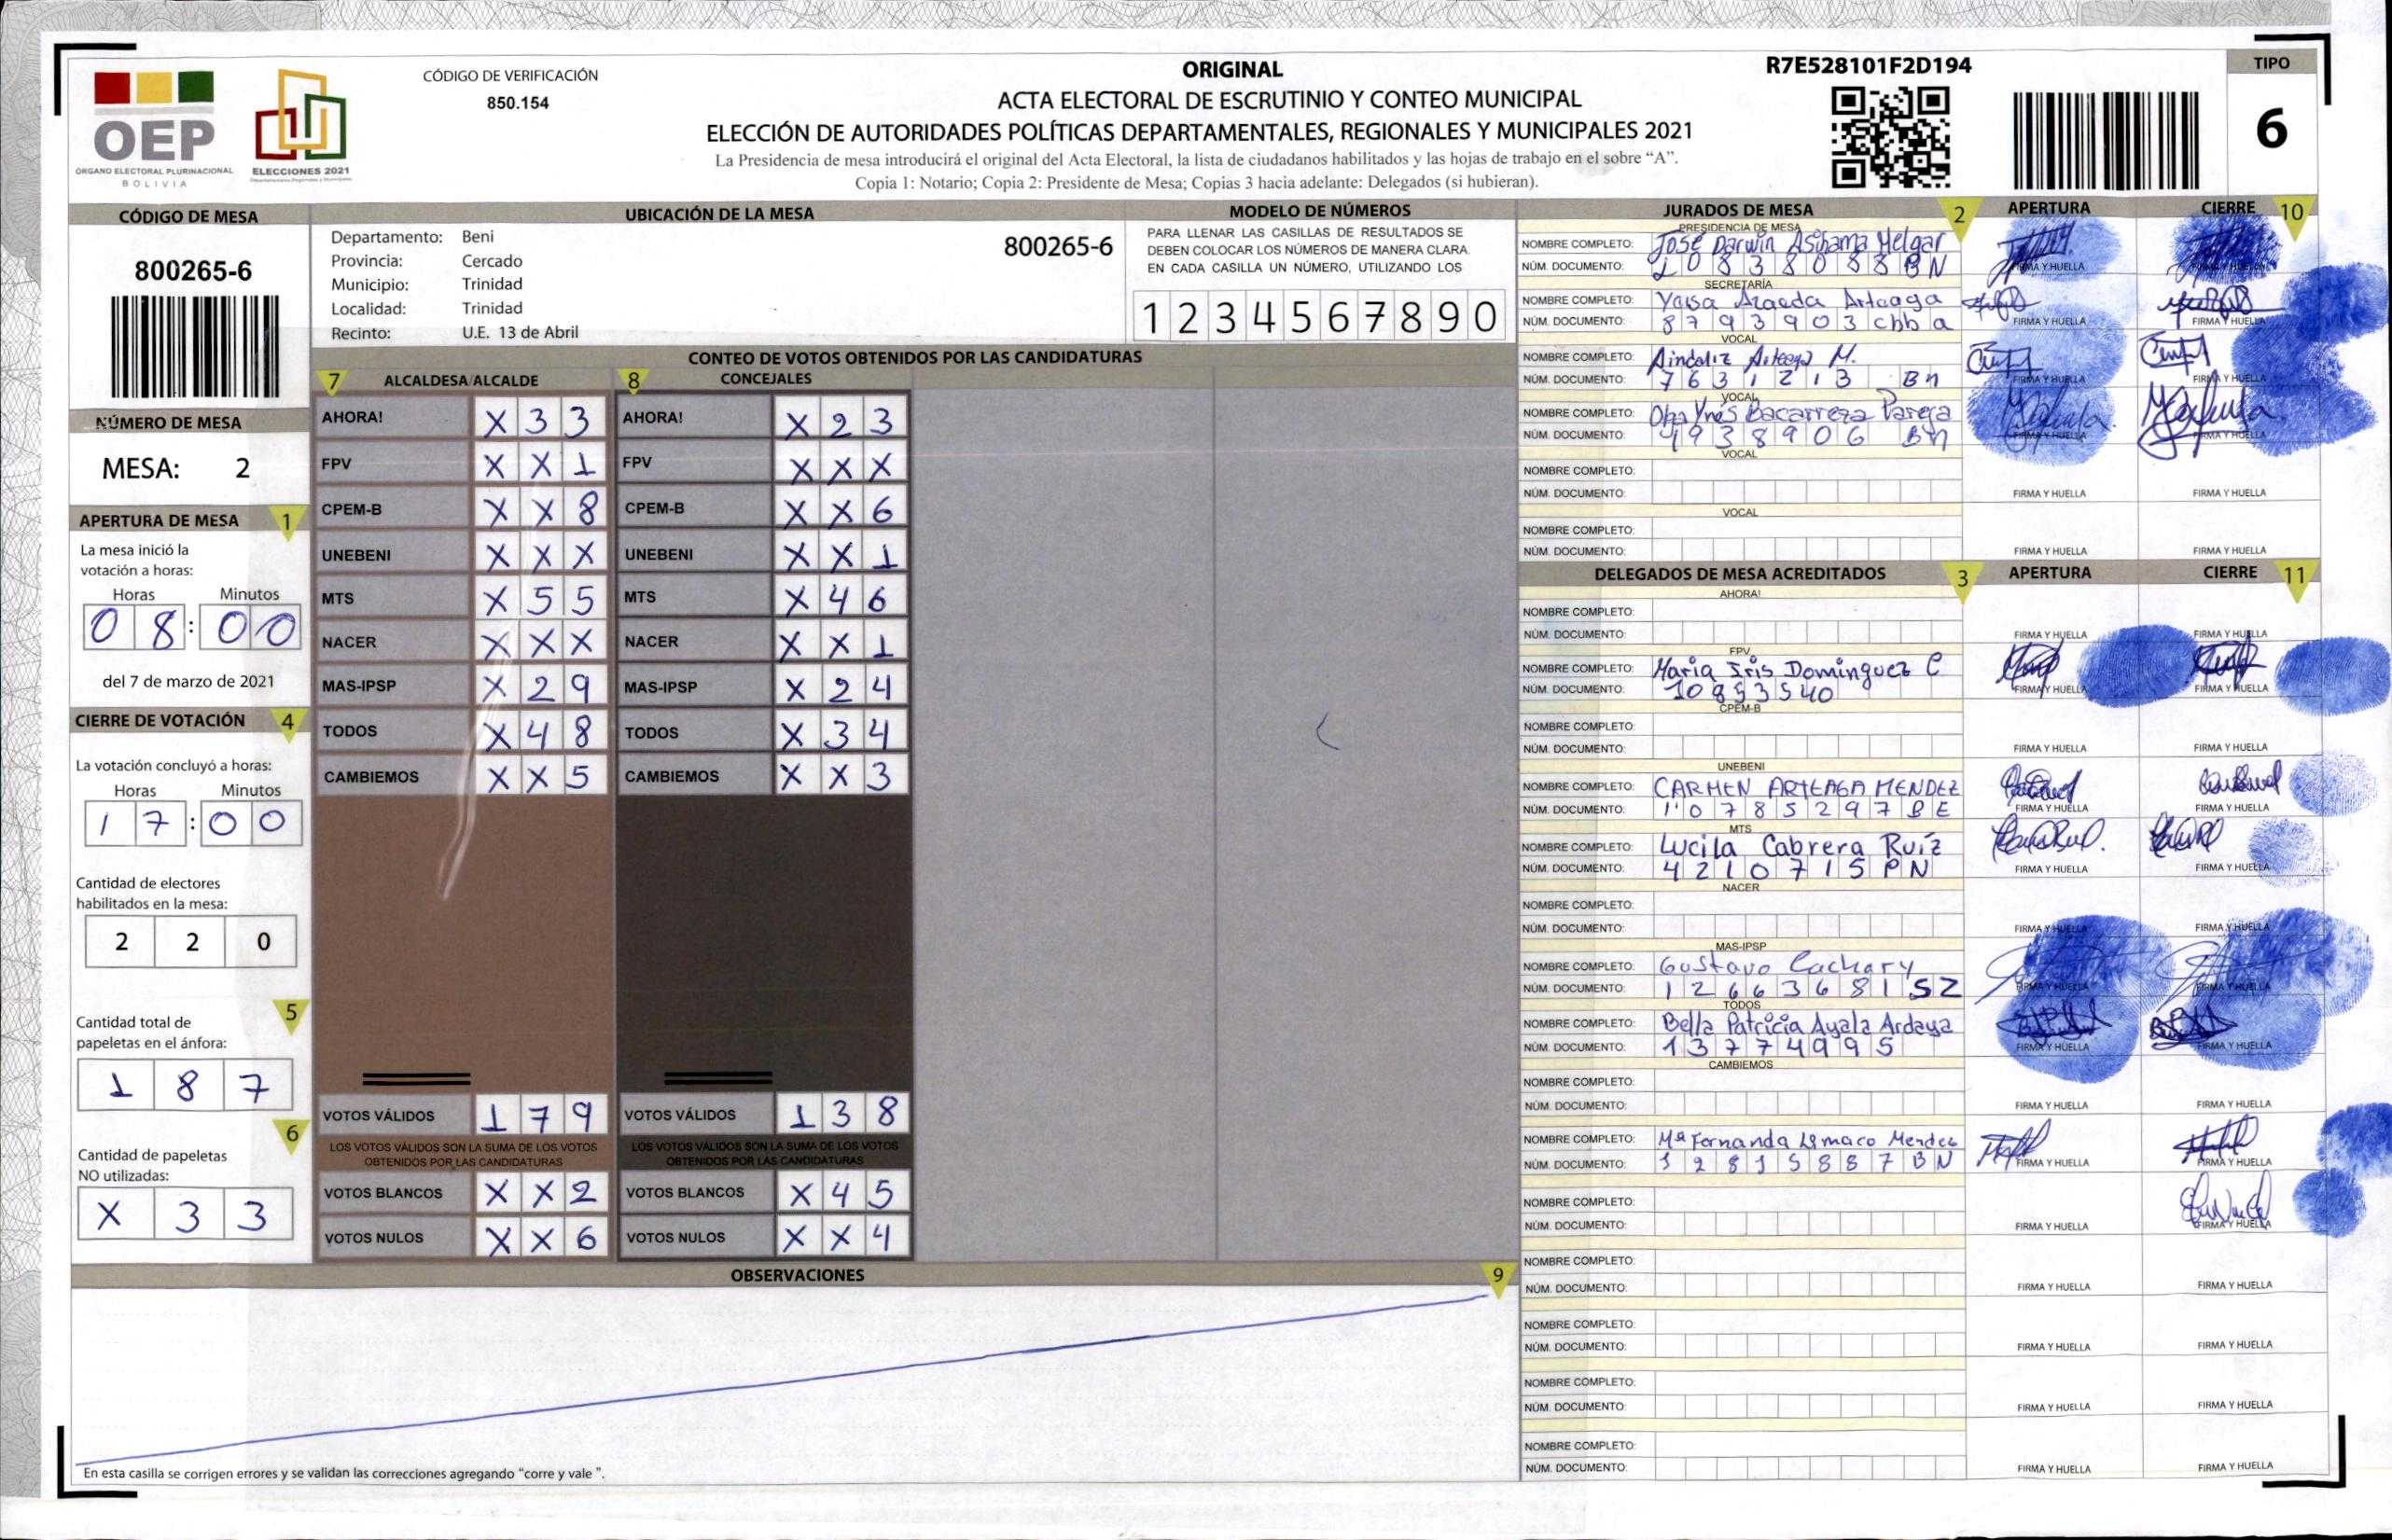 OEP
ÓRGANO ELECTORAL PLURINACIONAL
BOLIVIA
ELECCIONES 2021
CÓDIGO DE VERIFICACIÓN
850.154
ORIGINAL
ACTA ELECTORAL DE ESCRUTINIO Y CONTEO MUNICIPAL
ELECCIÓN DE AUTORIDADES POLÍTICAS DEPARTAMENTALES, REGIONALES Y MUNICIPALES 2021
La Presidencia de mesa introducirá el original del Acta Electoral, la lista de ciudadanos habilitados y las hojas de trabajo en el sobre “A”.
Copia 1: Notario; Copia 2: Presidente de Mesa; Copias 3 hacia adelante: Delegados (si hubieran).
R7E528101F2D194
TIPO
6
CÓDIGO DE MESA
800265-6
NÚMERO DE MESA
MESA: 2
APERTURA DE MESA 1
La mesa inició la
votación a horas:
Horas Minutos
0 8 : 0 0
del 7 de marzo de 2021
CIERRE DE VOTACIÓN 4
La votación concluyó a horas:
Horas Minutos
1 7 : 0 0
Cantidad de electores
habilitados en la mesa:
2 2 0
5
Cantidad total de
papeletas en el ánfora:
1 8 7
6
Cantidad de papeletas
NO utilizadas:
X 3 3
UBICACIÓN DE LA MESA
Departamento: Beni
Provincia: Cercado
Municipio: Trinidad
Localidad: Trinidad
Recinto: U.E. 13 de Abril
800265-6
MODELO DE NÚMEROS
PARA LLENAR LAS CASILLAS DE RESULTADOS SE
DEBEN COLOCAR LOS NÚMEROS DE MANERA CLARA
EN CADA CASILLA UN NÚMERO, UTILIZANDO LOS
1 2 3 4 5 6 7 8 9 0
CONTEO DE VOTOS OBTENIDOS POR LAS CANDIDATURAS
7 ALCALDESA/ALCALDE 8 CONCEJALES
AHORA! X 3 3 AHORA! X 2 3
FPV X X 1 FPV X X X
CPEM-B X X 8 CPEM-B X X 6
UNEBENI X X X UNEBENI X X 1
MTS X 5 5 MTS X 4 6
NACER X X X NACER X X 1
MAS-IPSP X 2 9 MAS-IPSP X 2 4
TODOS X 4 8 TODOS X 3 4
CAMBIEMOS X X 5 CAMBIEMOS X X 3
VOTOS VÁLIDOS 1 7 9 VOTOS VÁLIDOS 1 3 8
LOS VOTOS VÁLIDOS SON LA SUMA DE LOS VOTOS LOS VOTOS VÁLIDOS SON LA SUMA DE LOS VOTOS
OBTENIDOS POR LAS CANDIDATURAS OBTENIDOS POR LAS CANDIDATURAS
VOTOS BLANCOS X X 2 VOTOS BLANCOS X 4 5
VOTOS NULOS X X 6 VOTOS NULOS X X 4
OBSERVACIONES 9
En esta casilla se corrigen errores y se validan las correcciones agregando “corre y vale ”.
JURADOS DE MESA 2 APERTURA CIERRE 10
PRESIDENCIA DE MESA
NOMBRE COMPLETO: José Darwin Asihama Melgar
NÚM. DOCUMENTO: 10838088 BN FIRMA Y HUELLA FIRMA Y HUELLA
SECRETARÍA
NOMBRE COMPLETO: Arteaga
NÚM. DOCUMENTO: 8793903 cbba FIRMA Y HUELLA FIRMA Y HUELLA
VOCAL
NOMBRE COMPLETO: Arteaga M.
NÚM. DOCUMENTO: 7631213 Bn FIRMA Y HUELLA FIRMA Y HUELLA
VOCAL
NOMBRE COMPLETO: Ynés Bacarreza Pareja
NÚM. DOCUMENTO: 1938906 Bn FIRMA Y HUELLA FIRMA Y HUELLA
VOCAL
NOMBRE COMPLETO:
NÚM. DOCUMENTO: FIRMA Y HUELLA FIRMA Y HUELLA
VOCAL
NOMBRE COMPLETO:
NÚM. DOCUMENTO: FIRMA Y HUELLA FIRMA Y HUELLA
DELEGADOS DE MESA ACREDITADOS 3 APERTURA CIERRE 11
AHORA!
NOMBRE COMPLETO:
NÚM. DOCUMENTO: FIRMA Y HUELLA FIRMA Y HUELLA
FPV
NOMBRE COMPLETO: Maria Iris Dominguez C
NÚM. DOCUMENTO: 10853540 FIRMA Y HUELLA FIRMA Y HUELLA
CPEM-B
NOMBRE COMPLETO:
NÚM. DOCUMENTO: FIRMA Y HUELLA FIRMA Y HUELLA
UNEBENI
NOMBRE COMPLETO: CARMEN ARTEAGA MENDEZ
NÚM. DOCUMENTO: 10785297 BE FIRMA Y HUELLA FIRMA Y HUELLA
MTS
NOMBRE COMPLETO: Lucila Cabrera Ruíz
NÚM. DOCUMENTO: 4210715 PN FIRMA Y HUELLA FIRMA Y HUELLA
NACER
NOMBRE COMPLETO:
NÚM. DOCUMENTO: FIRMA Y HUELLA FIRMA Y HUELLA
MAS-IPSP
NOMBRE COMPLETO: Gustavo Cachary
NÚM. DOCUMENTO: 12663681 SZ FIRMA Y HUELLA FIRMA Y HUELLA
TODOS
NOMBRE COMPLETO: Bella Patricia Ayala Ardaya
NÚM. DOCUMENTO: 13774995 FIRMA Y HUELLA FIRMA Y HUELLA
CAMBIEMOS
NOMBRE COMPLETO:
NÚM. DOCUMENTO: FIRMA Y HUELLA FIRMA Y HUELLA
NOMBRE COMPLETO: Mª Fernanda Lemaco Mendez
NÚM. DOCUMENTO: 12815887 BN FIRMA Y HUELLA FIRMA Y HUELLA
NOMBRE COMPLETO:
NÚM. DOCUMENTO: FIRMA Y HUELLA FIRMA Y HUELLA
NOMBRE COMPLETO:
NÚM. DOCUMENTO: FIRMA Y HUELLA FIRMA Y HUELLA
NOMBRE COMPLETO:
NÚM. DOCUMENTO: FIRMA Y HUELLA FIRMA Y HUELLA
NOMBRE COMPLETO:
NÚM. DOCUMENTO: FIRMA Y HUELLA FIRMA Y HUELLA
NOMBRE COMPLETO:
NÚM. DOCUMENTO: FIRMA Y HUELLA FIRMA Y HUELLA